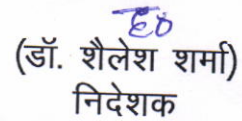 (डॉ. शैलेश शर्मा)
निदेशक